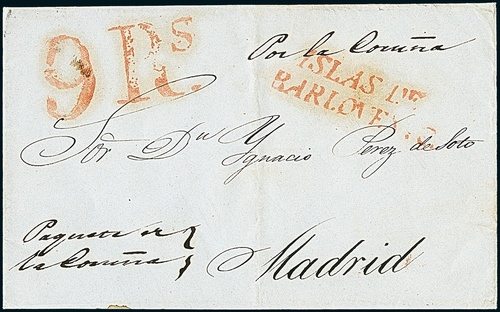 9 Rs.
Por la Coruña
ISLAS DE
BARLOVENTO
Sor. Dn. Ygnacio Perez de Soto
Paquete de
la Coruña
Madrid